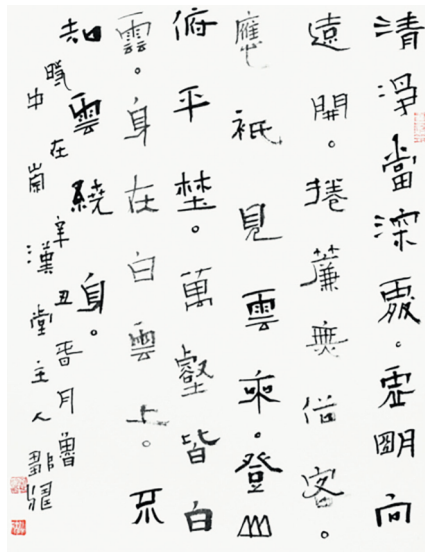 清淨當深處。虛明向
遠開。捲簾無俗客。
應祇見雲來。登山
俯平埜。萬壑皆白
雲。身在白雲上。不
知雲繞身。
時在辛丑月魯
中嵩漢堂主人鄒